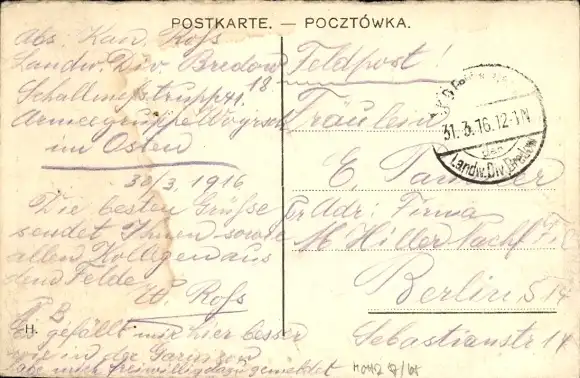 POSTKARTE. — POCZTÓWKA.
Abs. Kan. Roß
Landw. Div. Bredow
Schallmeßtrupp 41
Armeegruppe Woyrsch
im Osten
30/3. 1916
Die besten Grüße
sendet Ihnen sowie
allen Kollegen aus
dem Felde
W. Roß
Es gefällt mir hier besser
wie in der Garnison
habe mich freiwillig dazu gemeldet
H.
Feldpost!
Fräulein
E.
pr Adr. Firma
M. Hiller Nachf
Berlin S 14
Sebastianstr 14
31.3.16.12-1N
Landw. Div. Bredow